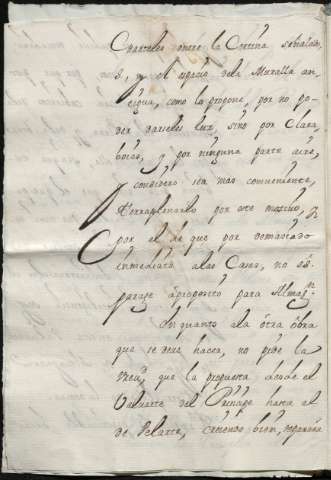 Quarteles entre la Cortina señalada
3, y el espacio dela Muralla an-
tigua, como la propone, por no po-
der darseles luz, sino por Clara-
boias, y por ninguna parte aire,
y considero sea mas combeniente,
Terraplenarlo por este motivo,
por el de que por demasiado
inmediato alas Casas, no es
parage àproposito para Almaz.n
En quanto ala otra obra
que se deve hacer, no pide la
que la propuesta desde el
Valuarte del Principe hasta el
de Velarte, siendo bien, reparada